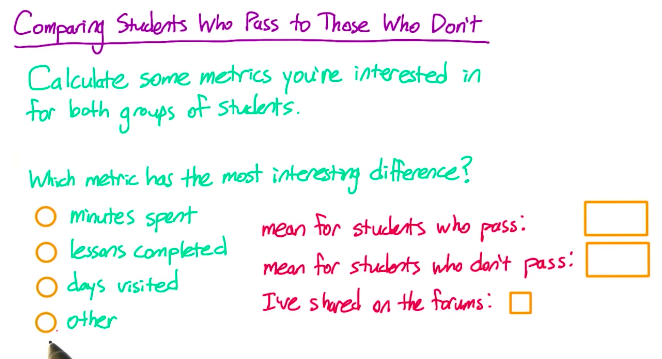 Comparing Students Who Pass to Those Who Don't
Calculate some metrics you're interested in
for both groups of students.
Which metric has the most interesting difference?
minutes spent
lessons completed
days visited
other
mean for students who pass:
mean for students who don't pass:
I've shared on the forums: